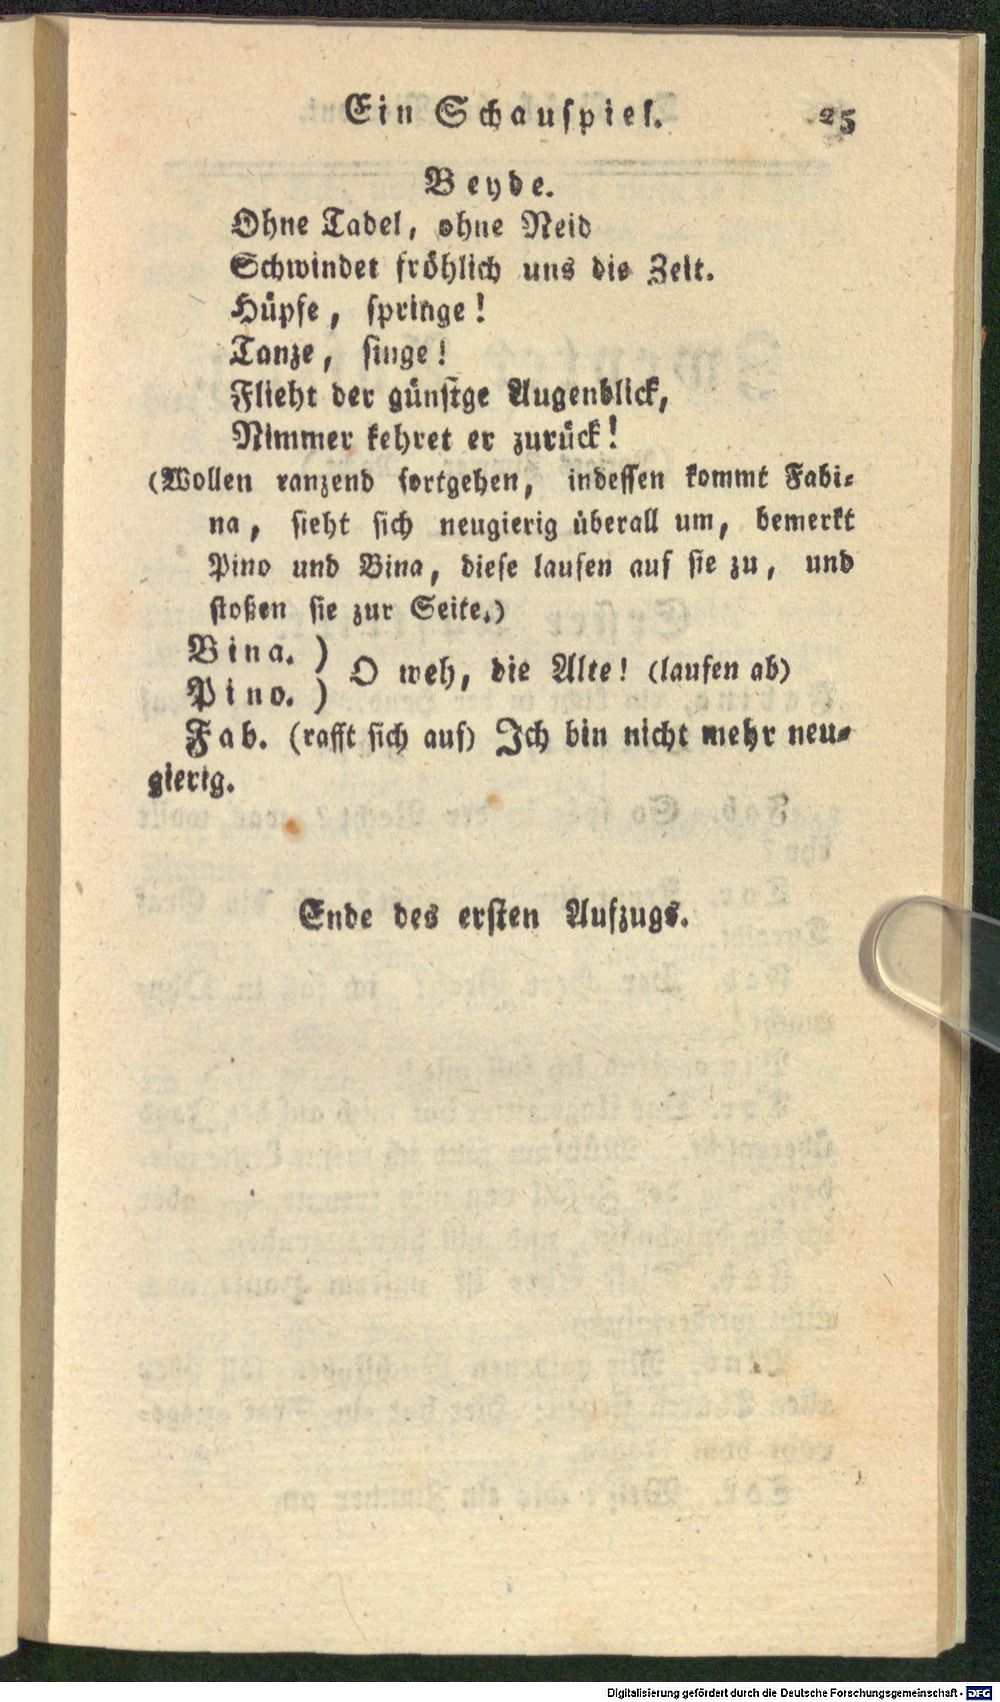 Ein Schauspiel. 25
Beyde.
Ohne Tadel, ohne Neid
Schwindet fröhlich uns die Zeit.
Hüpfe, springe!
Tanze, singe!
Flieht der günstge Augenblick,
Nimmer kehret er zurück!
(Wollen tanzend fortgehen, indessen kommt Fabi-
na, sieht sich neugierig überall um, bemerkt
Pino und Bina, diese laufen auf sie zu, und
stoßen sie zur Seite.)
Bina. )
Pino. ) O weh, die Alte! (laufen ab)
Fab. (rafft sich auf) Ich bin nicht mehr neu-
gierig.
Ende des ersten Aufzugs.
Digitalisierung gefördert durch die Deutsche Forschungsgemeinschaft - DFG